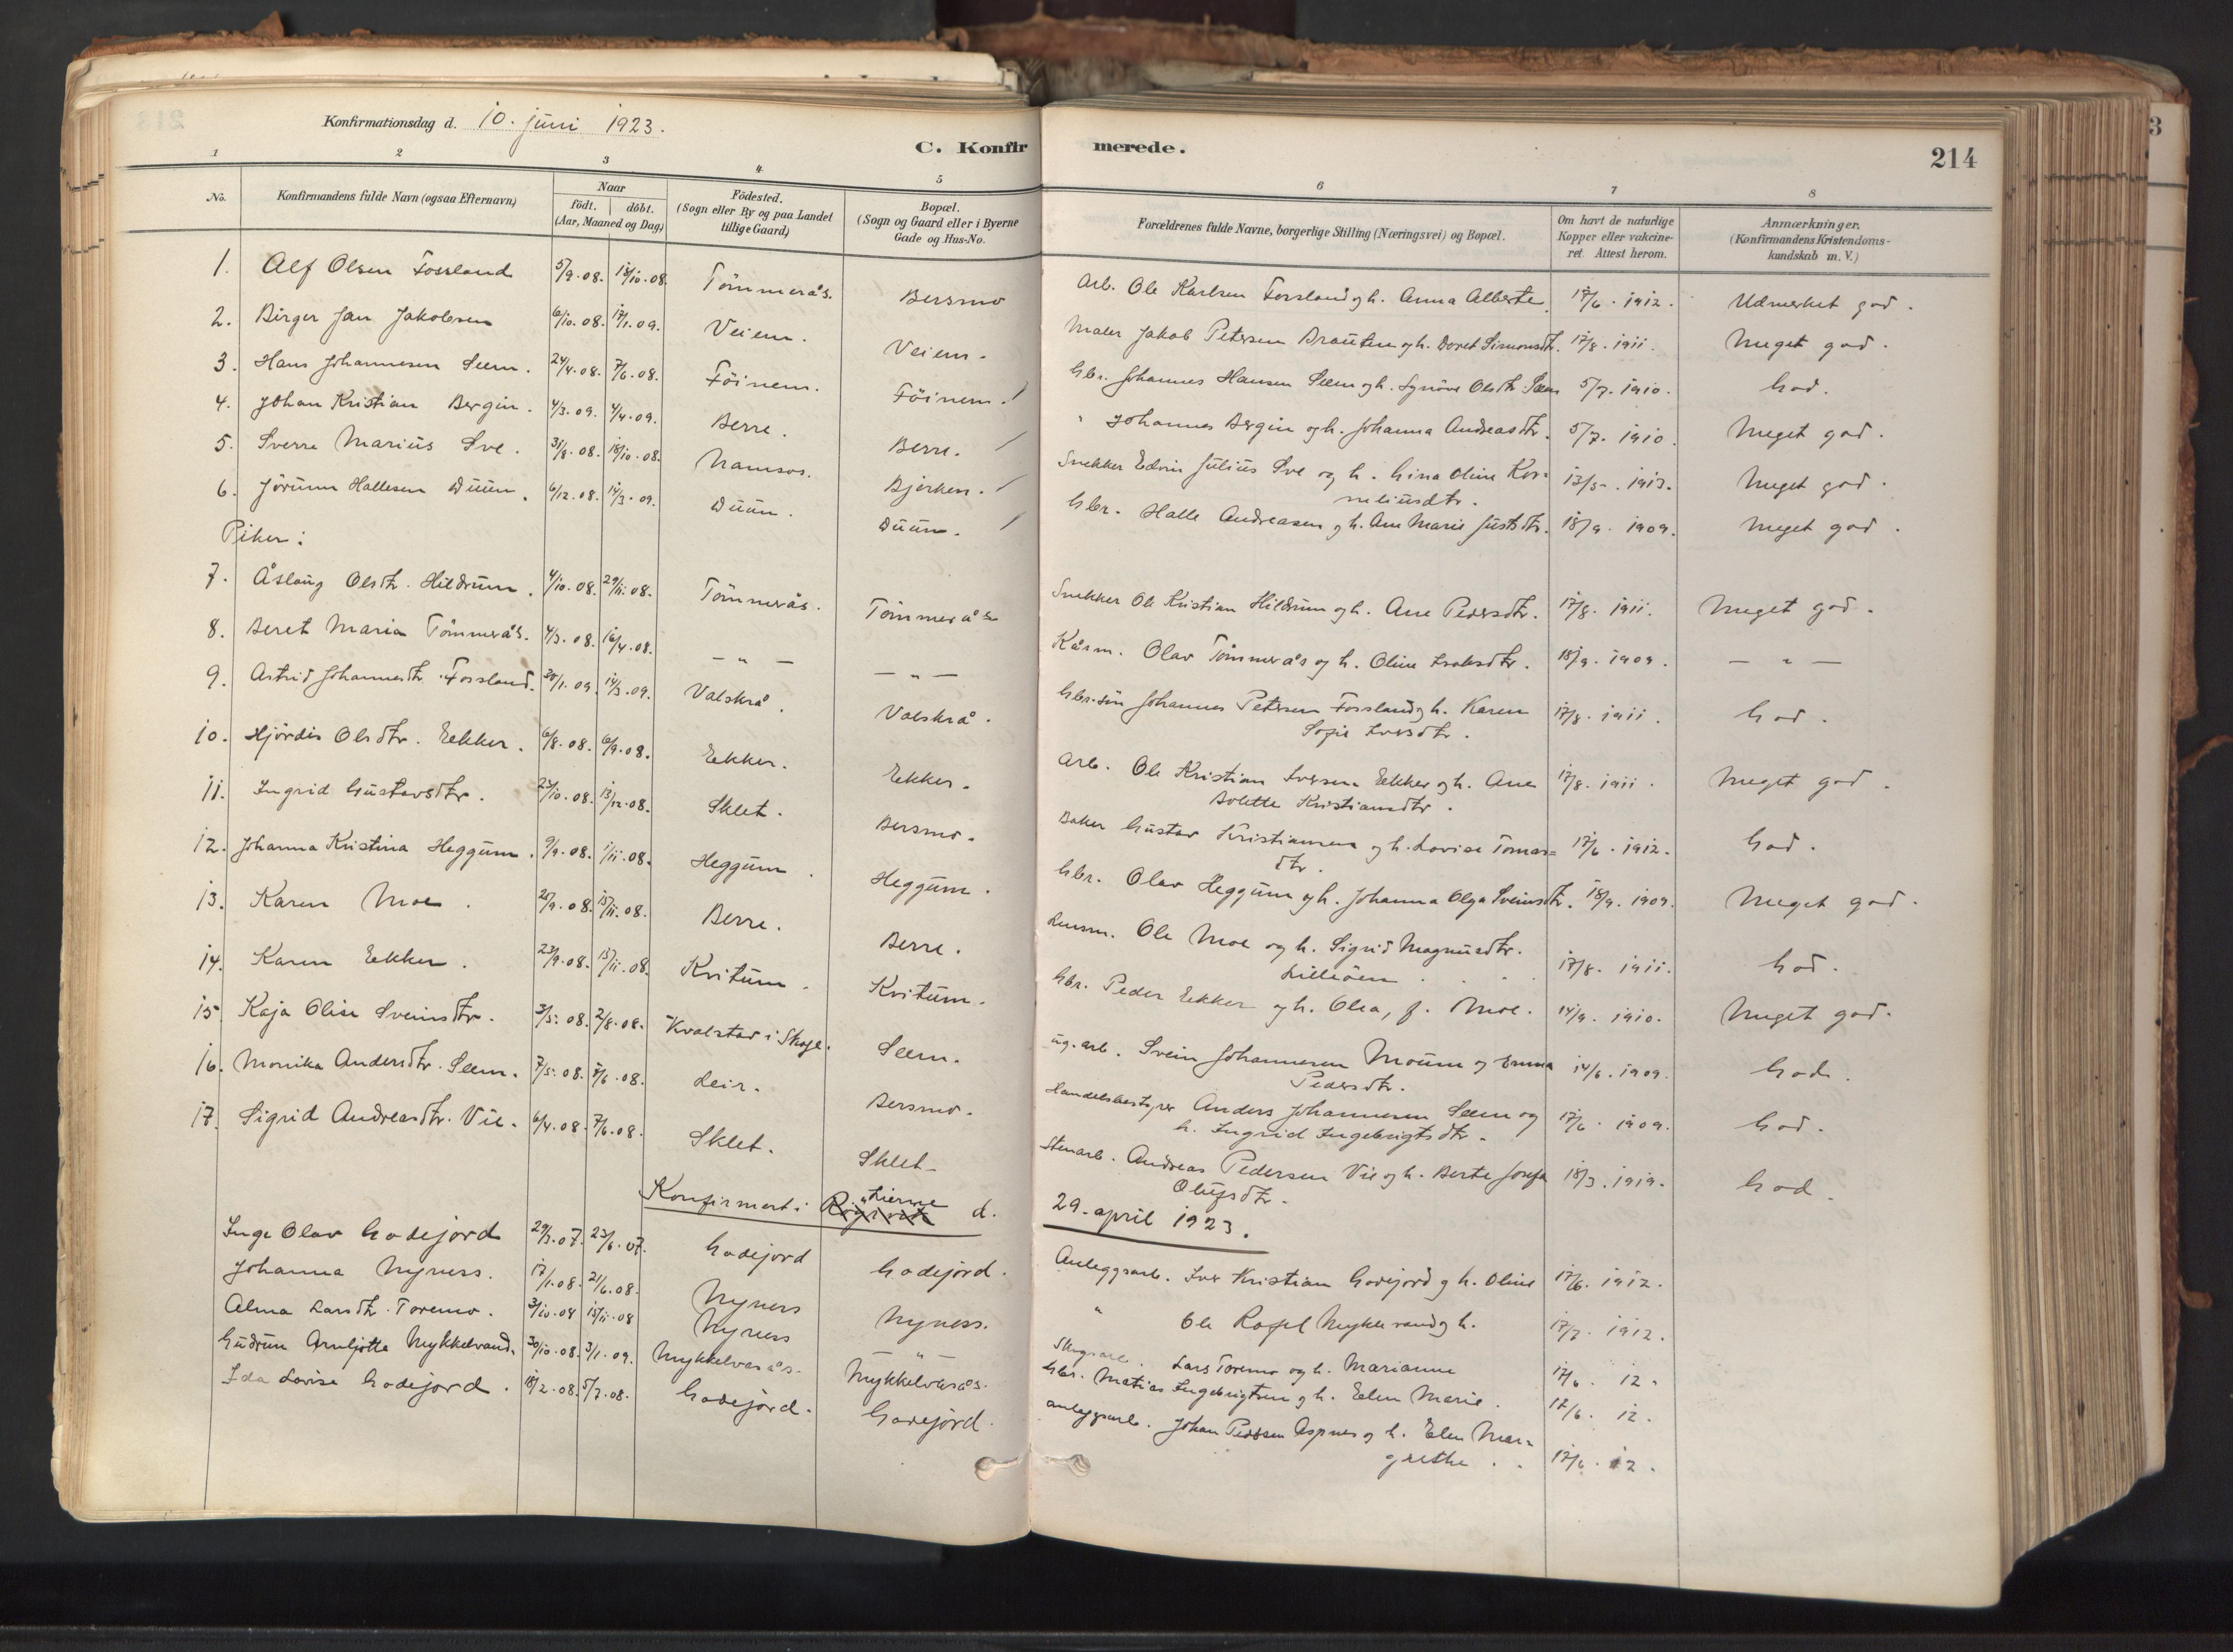 Konfirmationsdag d. 10. juni 1923.
C. Konfirmerede.
214
1 2 3 4 5 6 7 8
No.
Konfirmandens fulde Navn (ogsaa Efternavn)
Naar
født. | døbt.
(Aar, Maaned og Dag)
Fødested.
(Sogn eller By og paa Landet
tillige Gaard)
Bopæl.
(Sogn og Gaard eller i Byerne
Gade og Hus-No.
Forældrenes fulde Navne, borgerlige Stilling (Næringsvei) og Bopæl.
Om havt de naturlige
Kopper eller vakcine-
ret. Attest herom.
Anmærkninger.
(Konfirmandens Kristendoms-
kundskab m. V.)
1. Alf Olsen Fossland 5/9.08. 18/10.08. Tömmerås. Bersmo Arb. Ole Karlsen Fossland og h. Anna Alberte. 17/6. 1912. Udmerket god.
2. Birger Jan Jakobsen 6/10.08. 17/1.09. Veiem. Veiem. Maler Jakob Petersen Brauten og h. Doret Simonsdtr. 17/8. 1911. Meget god.
3. Hans Johannesen Seem. 24/4.08. 7/6.08. Föinem. Föinem. / Gbr. Johannes Hansen Seem og h. Synöve Olsdtr. Seem 5/7. 1910. God.
4. Johan Kristian Bergin. 4/3.09. 4/4.09. Berre. Berre. / " Johannes Bergin og h. Johanna Andreasdtr. 5/7. 1910. Meget god.
5. Sverre Marius Sve. 31/8.08. 18/10.08. Namsos. Björken. / Snekker Edvin Julius Sve og h. Gina Oline Kor=
neliusdtr. 13/5. 1913. Meget god.
6. Jörunn Hallesen Duun. 6/12.08. 14/3.09. Duun. Duun. / Gbr. Halle Andreasen og h. Ane Marie Justsdtr. 18/9. 1909. Meget god.
Piker:
7. Åslaug Olsdtr. Hildrum. 4/10.08. 29/11.08. Tömmerås. Tömmerås Snekker Ole Kristian Hildrum og h. Ane Pedersdtr. 17/8. 1911. Meget god.
8. Beret Maria Tömmerås. 4/3.08. 16/4.08. — " — — " — Kårm. Olav Tömmerås og h. Oline Isaksdtr. 18/9. 1909. — " —
9. Astrid Johannesdtr. Fossland. 30/1.09. 14/3.09. Valskrå. Valskrå. Gbr.sön Johannes Petersen Fossland og h. Karen
Sofie Iversdtr. 17/8. 1911. God.
10. Hjördis Olsdtr. Ekker. 6/8.08. 6/9.08. Ekker. Ekker. Arb. Ole Kristian Iversen Ekker og h. Ane
Bolette Kristiansdtr. 17/8. 1911. Meget god.
11. Ingrid Gustavsdtr. 23/10.08. 13/12.08. Sklet. Bersmo. Baker Gustav Kristiansen og h. Lovise Tomas=
dtr. 17/6. 1912. God.
12. Johanna Kristina Heggum. 9/9.08. 1/11.08. Heggum. Heggum. Gbr. Olav Heggum og h. Johanna Olga Sveinsdtr. 18/9. 1909. Meget god.
13. Karen Moe. 25/9.08. 15/11.08. Berre. Berre. Lensm. Ole Moe og h. Sigrid Magnusdtr.
Lilleöen. 17/8. 1911. God.
14. Karen Ekker. 23/9.08. 15/11.08. Kvitum. Kvitum. Gbr. Peder Ekker og h. Olea, f. Moe. 14/9. 1910. Meget god.
15. Kaja Olise Sveinsdtr. 3/5.08. 2/8.08. Kvalstad i Skage. Seem. ug. arb. Svein Johannesen Moum og Emma
Pedersdtr. 14/6. 1909. God.
16. Monika Andersdtr. Seem. 7/5.08. 8/6.08. Leir. Bersmo. Handelsbestyrer Anders Johannesen Seem og
h. Ingrid Ingebrigtsdtr. 17/6. 1909. God.
17. Sigrid Andreasdtr. Vie. 6/4.08. 7/6.08. Sklet. Sklet. Stenarb. Andreas Pedersen Vie og h. Berte Josefa
Olufsdtr. 18/3. 1919. God.
Konfirmert i Lierne d. 29. april 1923.
Inge Olav Godejord 29/3.07. 23/6.07. Godejord Godejord. Anleggsarb. Iver Kristian Godejord og h. Oline 17/6. 1912.
Johanna Nyness. 17/1.08. 21/6.08. Nyness Nyness. " Ole Rafel Mykkelvand og h. 17/7. 1912.
Alma Larsdtr. Toremo. 3/10.08 15/11.08 Nyness — " — Skogsarb. Lars Toremo og h. Marianne 17/6. 12.
Gudrun Arnljotta Mykkelvand. 30/10.08. 3/1.09. Mykkelvasås. Mykkelvasås. Gbr. Matias Ingebrigtsen og h. Elen Marie. 17/6. 12.
Ida Lovise Godejord. 18/2.08. 5/7.08. Godejord. Godejord. anleggsarb. Johan Pedersen Aspnes og h. Elen Mar=
grethe. 17/6. 12.